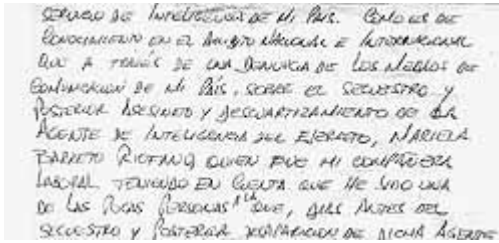 SERVICIO DE INTELIGENCIA DE MI PAIS. COMO ES DE
CONOCIMIENTO EN EL AMBITO NACIONAL E INTERNACIONAL
QUE A TRAVES DE UNA DENUNCIA DE LOS MEDIOS DE
COMUNICACION DE MI PAIS, SOBRE EL SECUESTRO Y
POSTERIOR ASESINATO Y DESCUARTIZAMIENTO DE LA
AGENTE DE INTELIGENCIA DEL EJERCITO, MARIELA
BARRETO RIOFANO QUIEN FUE MI COMPAÑERA
LABORAL TENIENDO EN CUENTA QUE HE SIDO UNA
DE LAS POCAS PERSONAS A LA QUE, DIAS ANTES DEL
SECUESTRO Y POSTERIOR DESAPARICION DE DICHA AGENTE